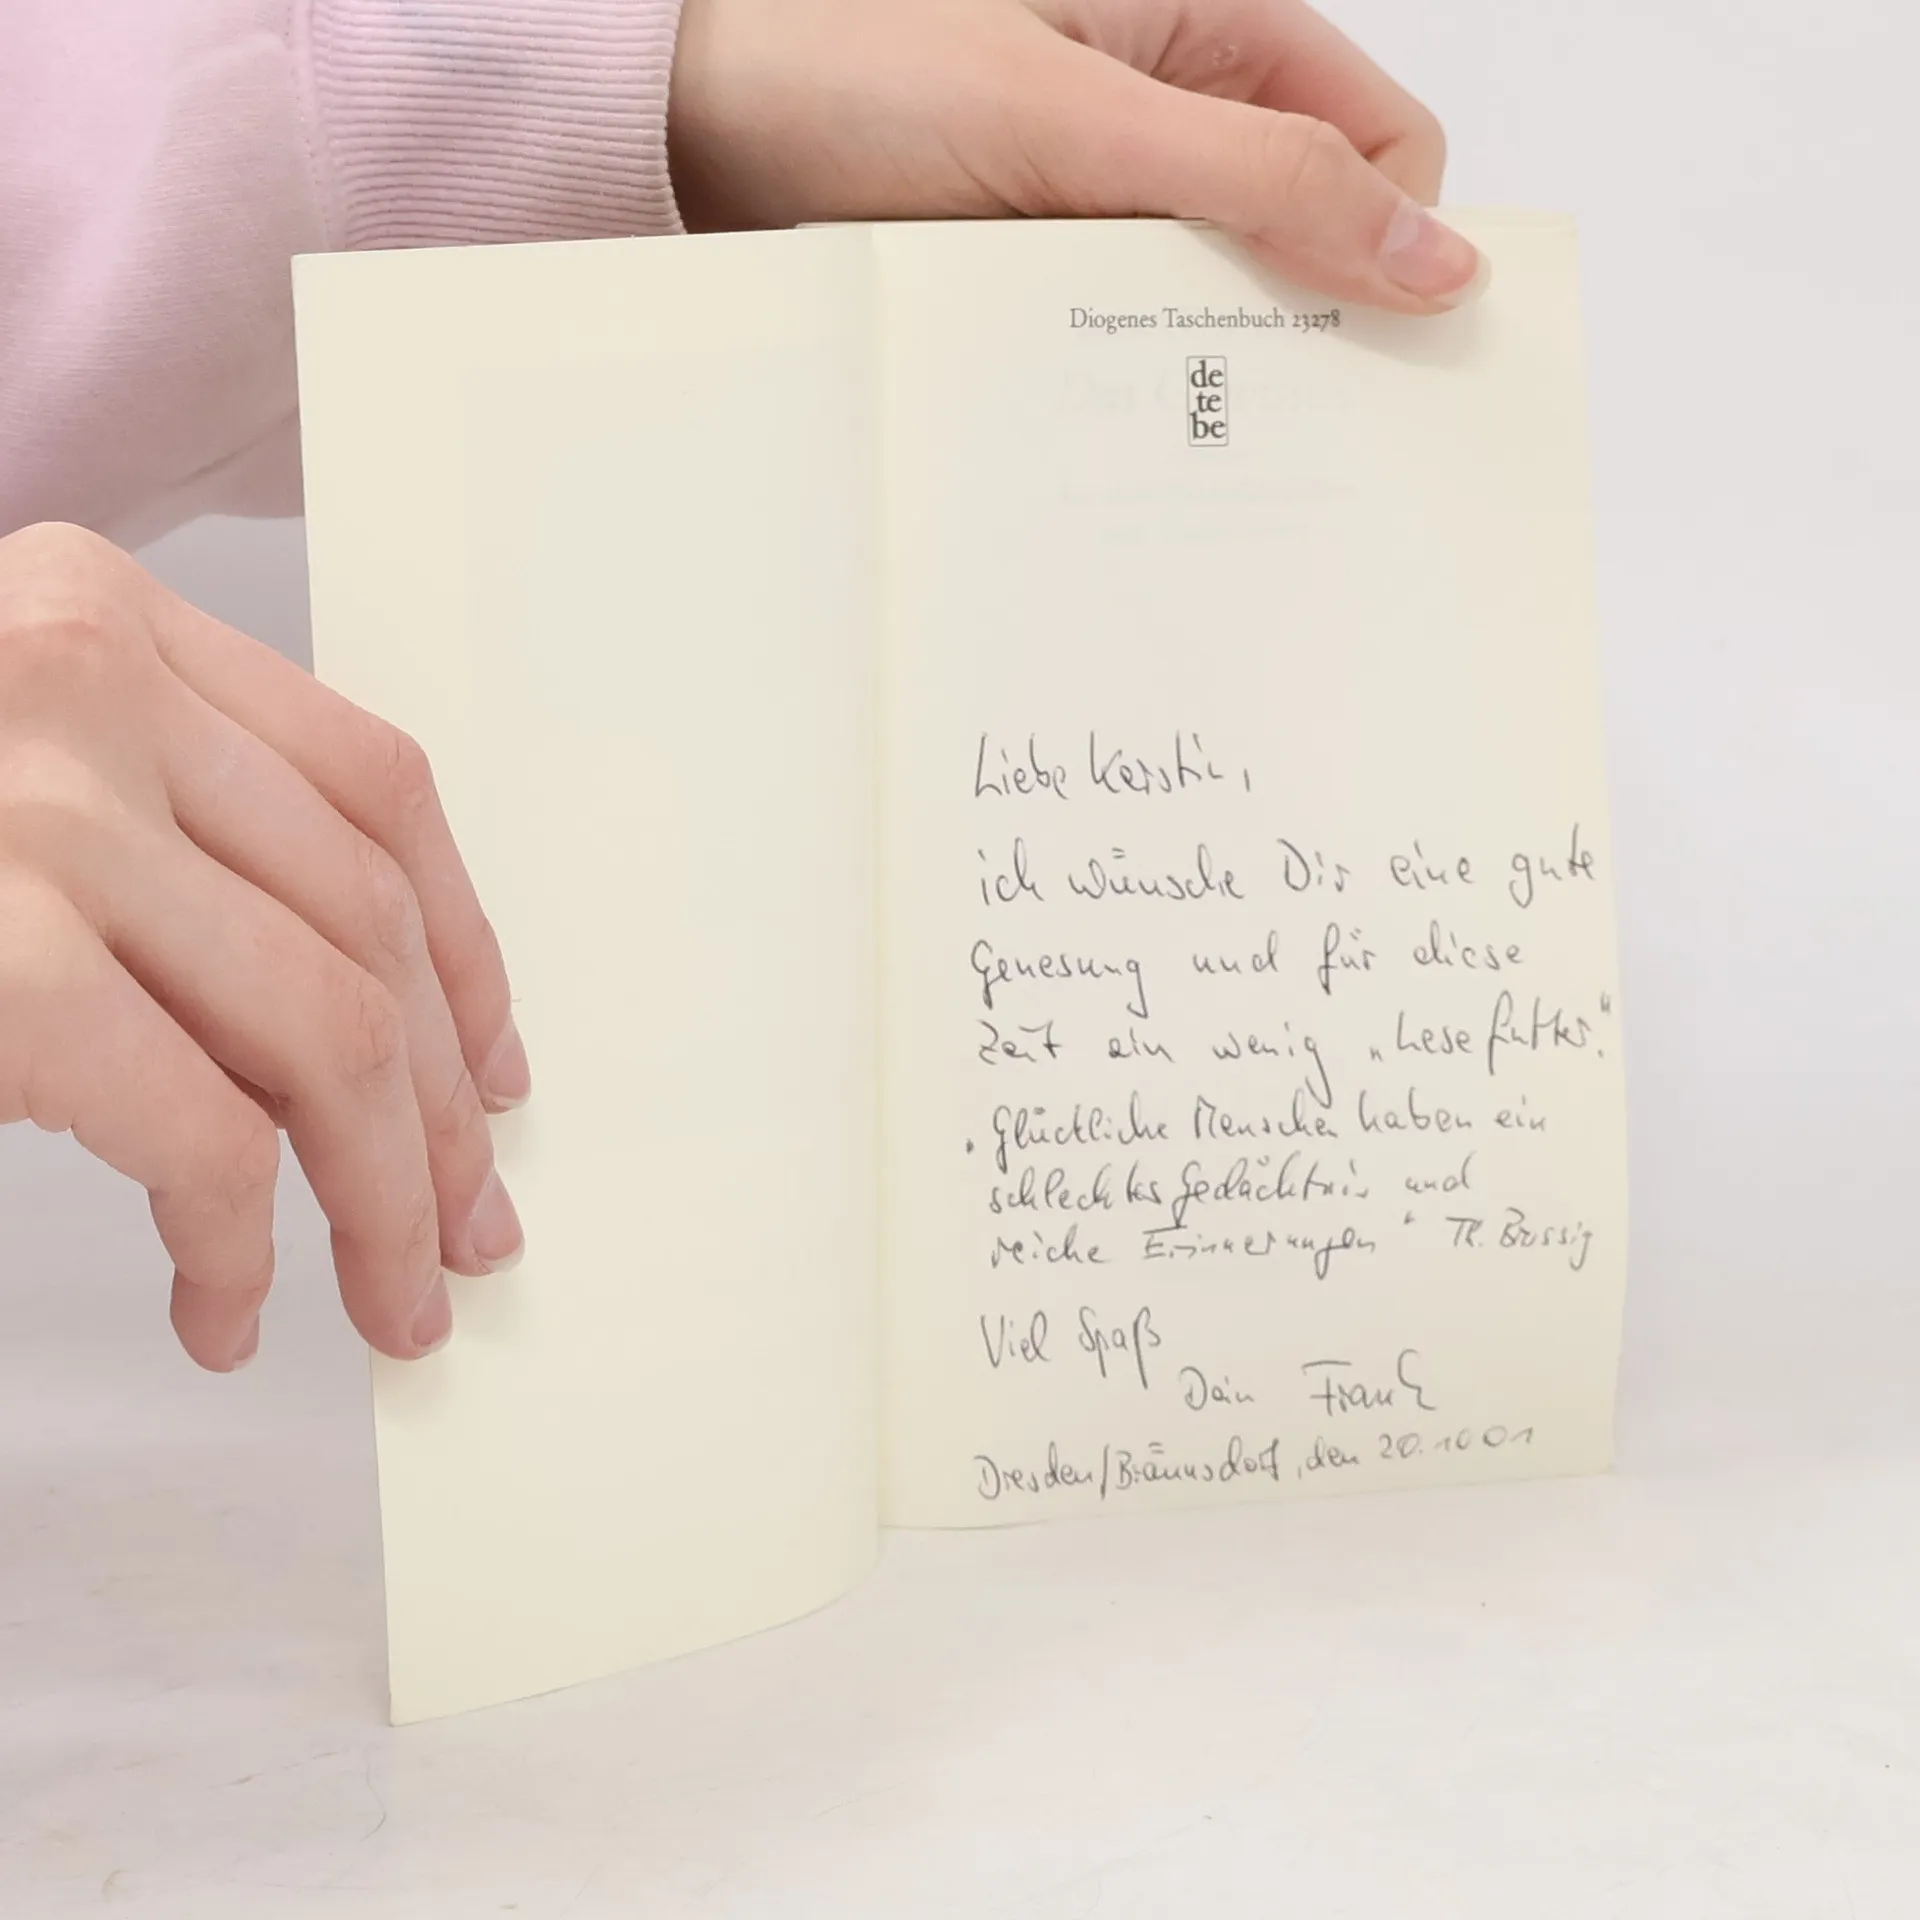 Diogenes Taschenbuch 23278
de
te
be
Liebe Kerstin,
ich wünsche Dir eine gute
Genesung und für diese
Zeit ein wenig „Lesefutter."
„Glückliche Menschen haben ein
schlechtes Gedächtnis und
reiche Erinnerungen“ Th. Brussig
Viel Spaß
Dein Frank
Dresden/Bräunsdorf, den 20.10 01